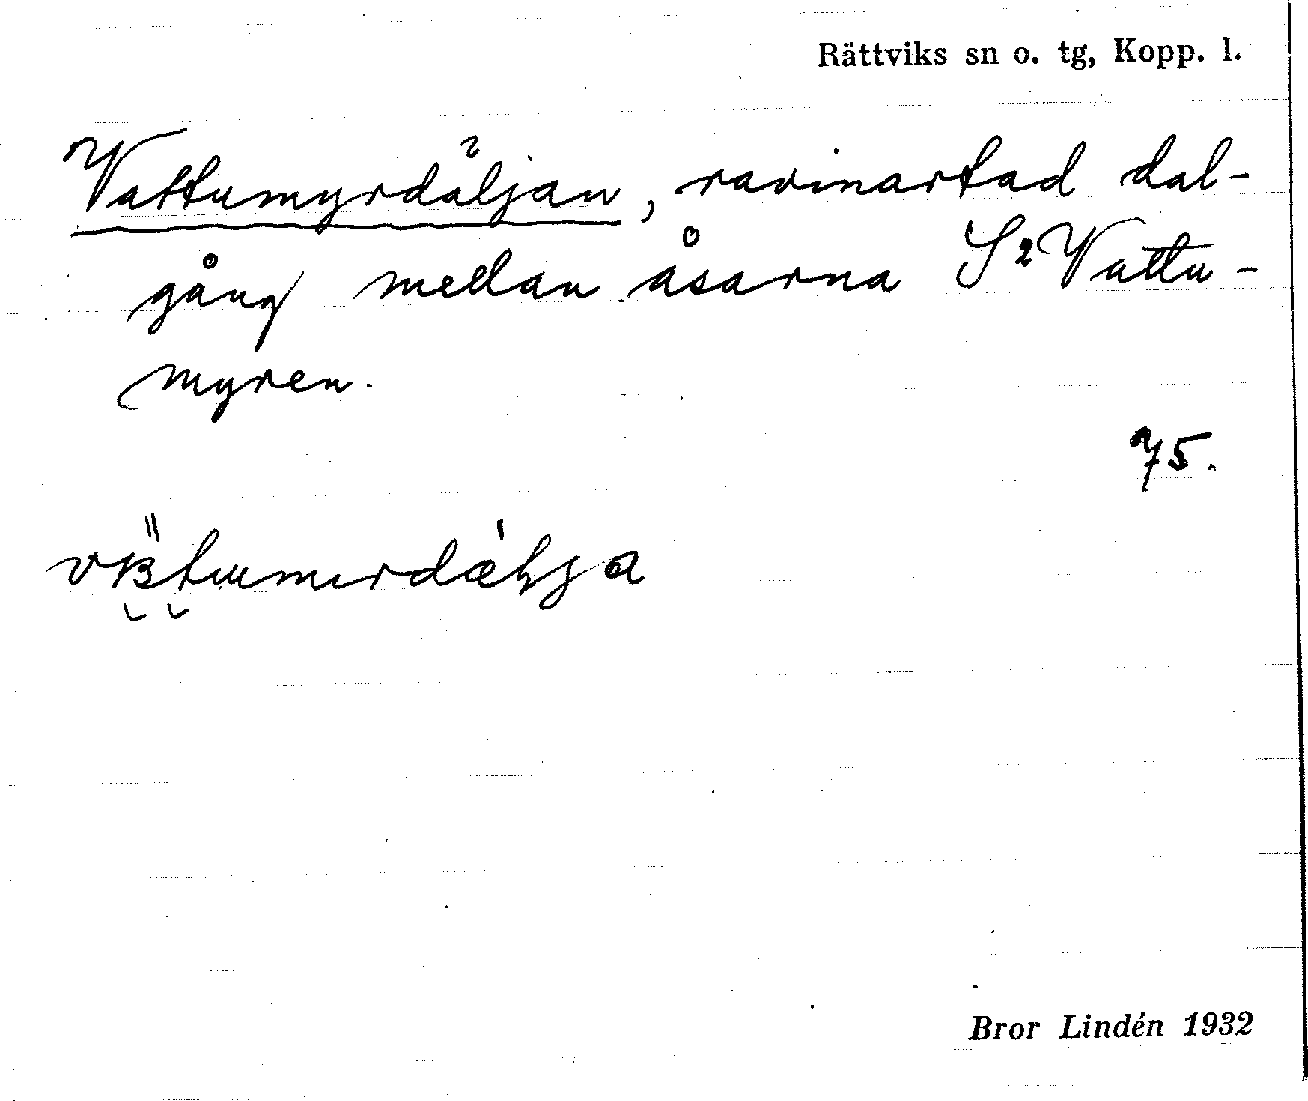 Rättviks sn o. tg, Kopp. l.
Vattumyrdäljan, ravinartad dal-
gång mellan åsarna S² Vattu-
myren.
75.
Bror Lindén 1932